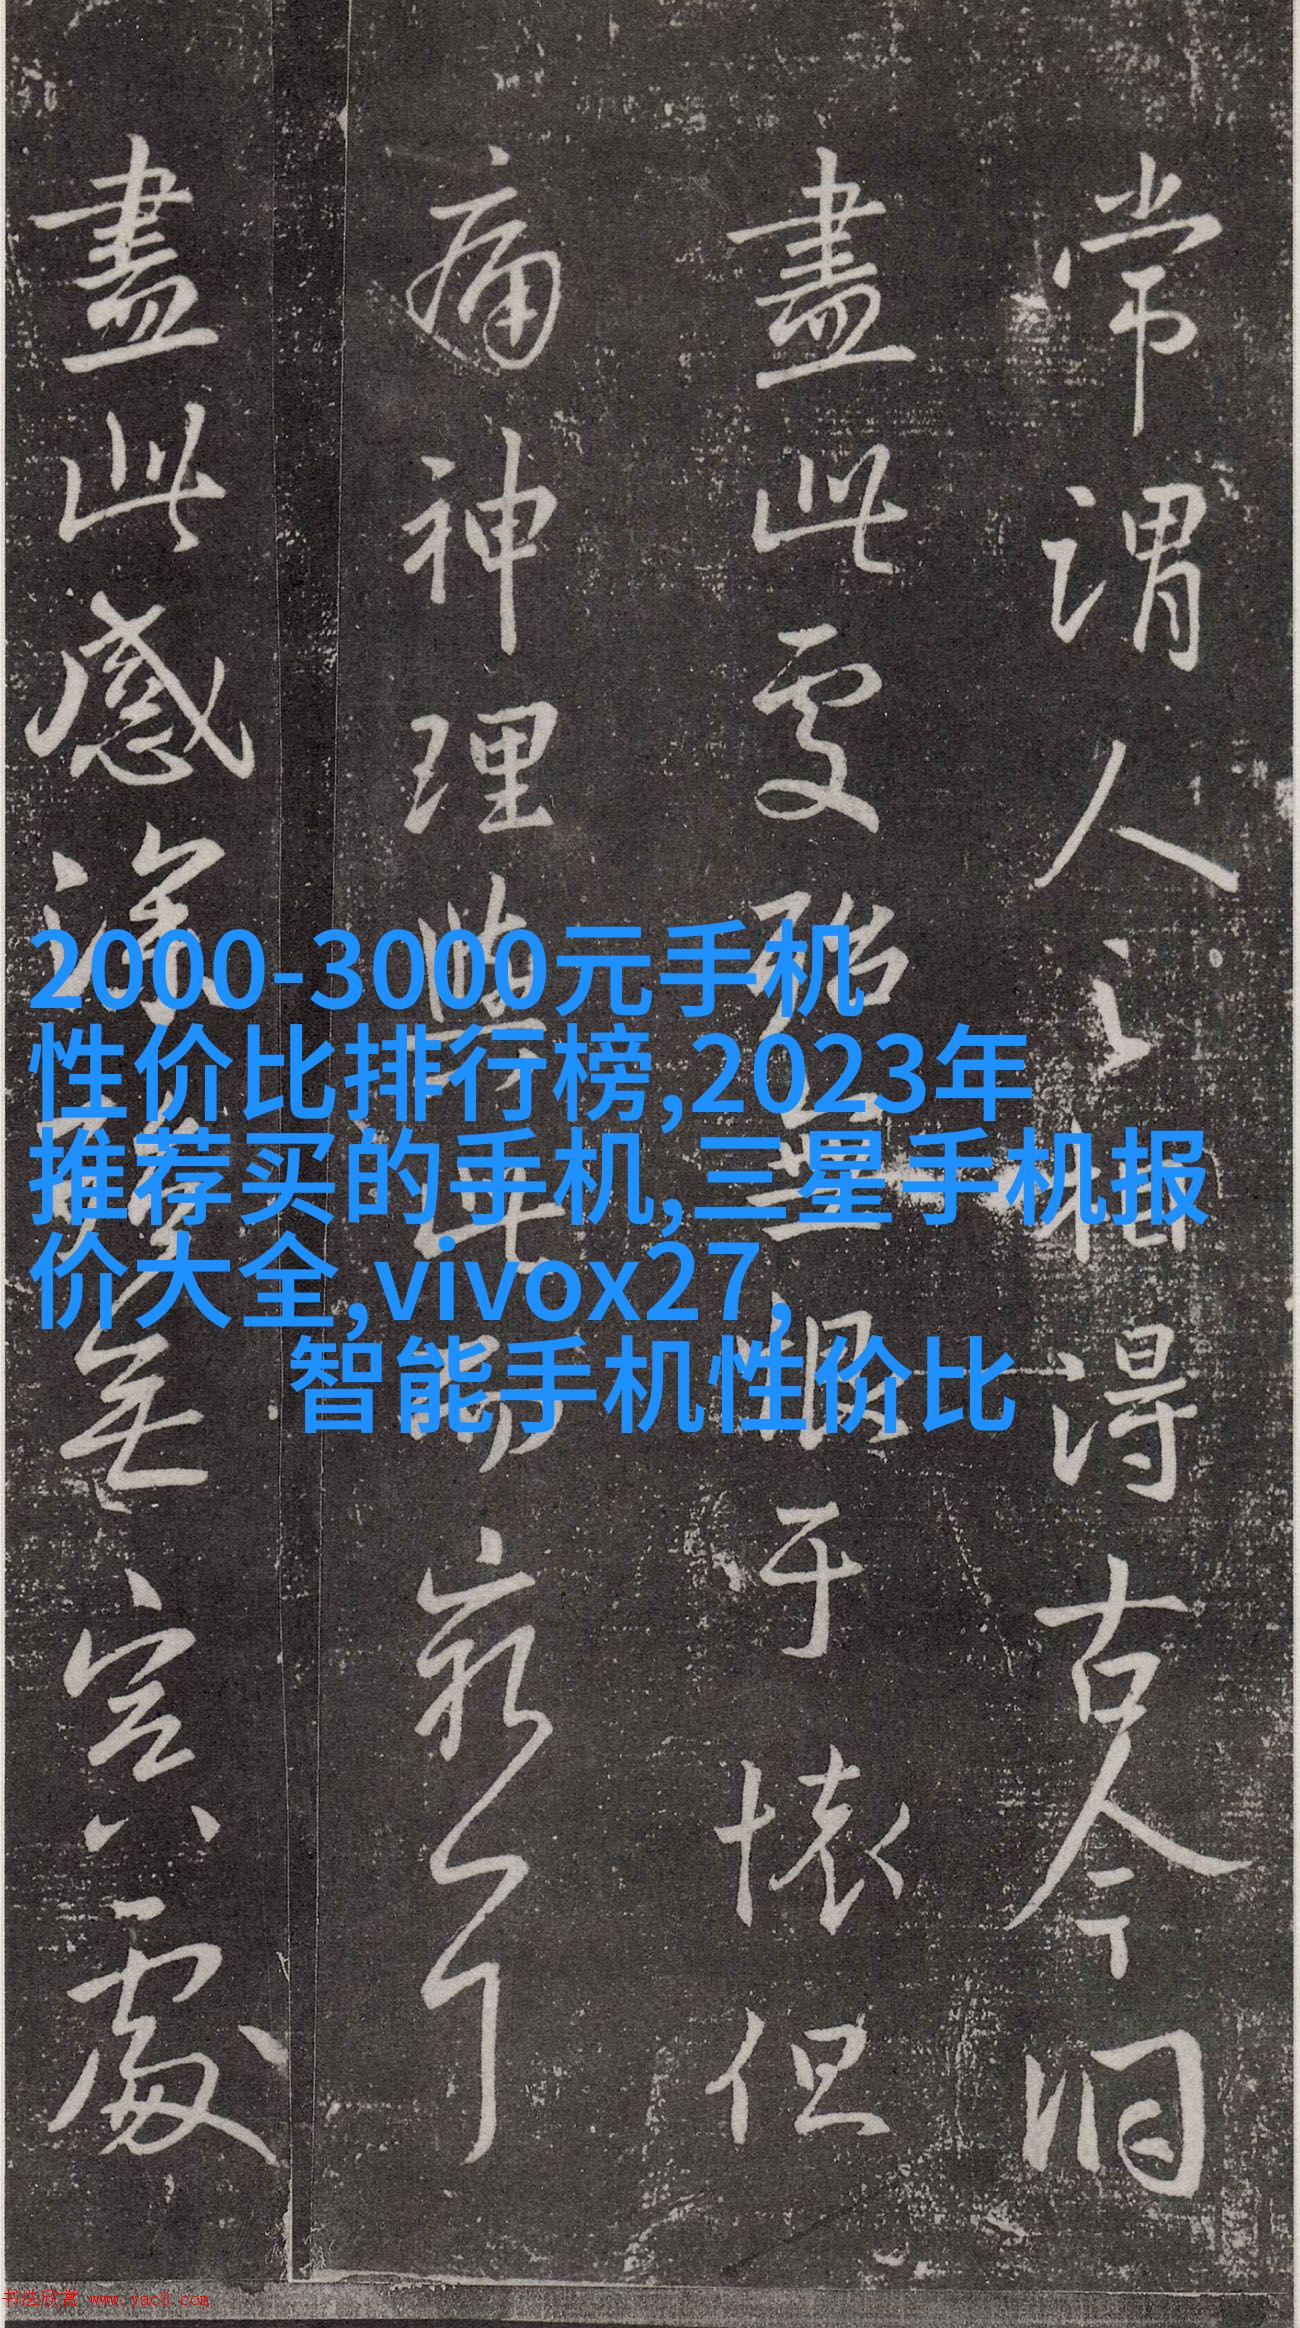 常謂人之相得古今洞
盡此處殆無恨于懷但
痛神理與此而窮耳
盡此感深殆無冥處
2000-3000元手机
性价比排行榜,2023年
推荐买的手机,三星手机报
价大全,vivox27,
智能手机性价比
书法欣赏 www.yac8.com